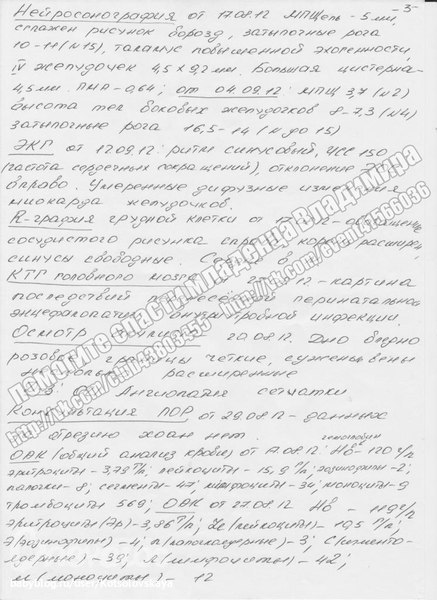 -3-
Нейросонография от 17.08.12 МПЩель - 5 мм,
сглажен рисунок борозд, затылочные рога
10-11 (N 15), таламус повышенной эхогенности,
IV желудочек 4,5 х 9,2 мм. Большая цистерна
4,5 мм. ПМА-0,64; от 04.09.12: МПЩ 3,7 (N2)
высота тел боковых желудочков 8-7,3 (N4)
затылочные рога 16,5-14 (N до 15)
ЭКГ от 17.09.12: ритм синусовый, ЧСС 150
(частота сердечных сокращений), отклонение
вправо. Умеренные дифузные изменения
миокарда желудочков.
R-графия грудной клетки от 17
сосудистого рисунка справа, корни расширен
синусы свободные.
КТГ головного мозга - картина
последствий перенесённой перинатальной
энцефалопатии, внутриутробной инфекции.
Осмотр 20.08.12. Дно бледно
розовое, границы четкие, сужены вены
расширенные
Ангиопатия сетчатки
Консультация ЛОР от 28.08.12 - данных
атрезию хоан нет.
гемоглобин
ОАК (общий анализ крови) от 17.08.12: Нв-120 г/л
эритроциты - 3,79 Т/л, лейкоциты - 15,9 Г/л; эозинофилы - 2;
палочки - 8; сегменты - 47; лимфоциты - 34; моноциты - 9
тромбоциты 569; ОАК от 27.08.12 Нв - 119 г/л
эритроциты (Эр) - 3,86 Т/л; Le (лейкоциты) - 10,5 Г/л;
Э (эозинофилы) - 4; п (палочкоядерные) - 3; С (сегменто-
ядерные) - 39; л (лимфоциты) - 42;
м (моноциты) - 12
Помогите Спасти Младенца Владимира
http://vk.com/club43603455
http://vk.com/event41566036